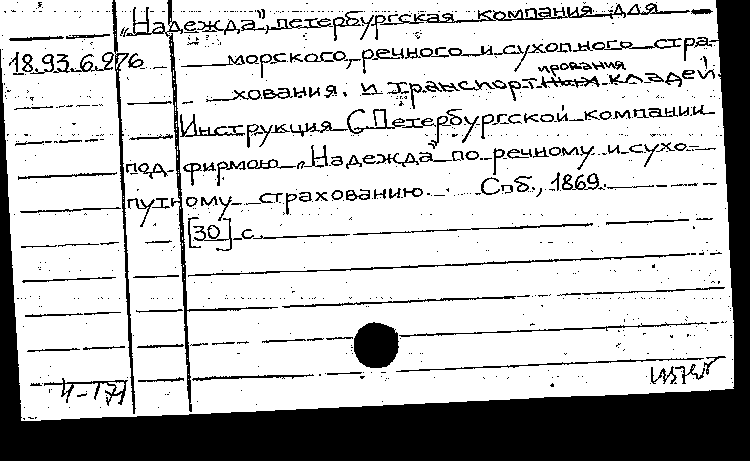 „Надежда", петербургская компания для
18.93.6.276 морского, речного и сухопного стра-
хования. и транспортирования кладей.
Инструкция С.Петербургской компании
под фирмою „Надежда" по речному и сухо-
путному страхованию. Спб., 1869.
[30] с.
И-171